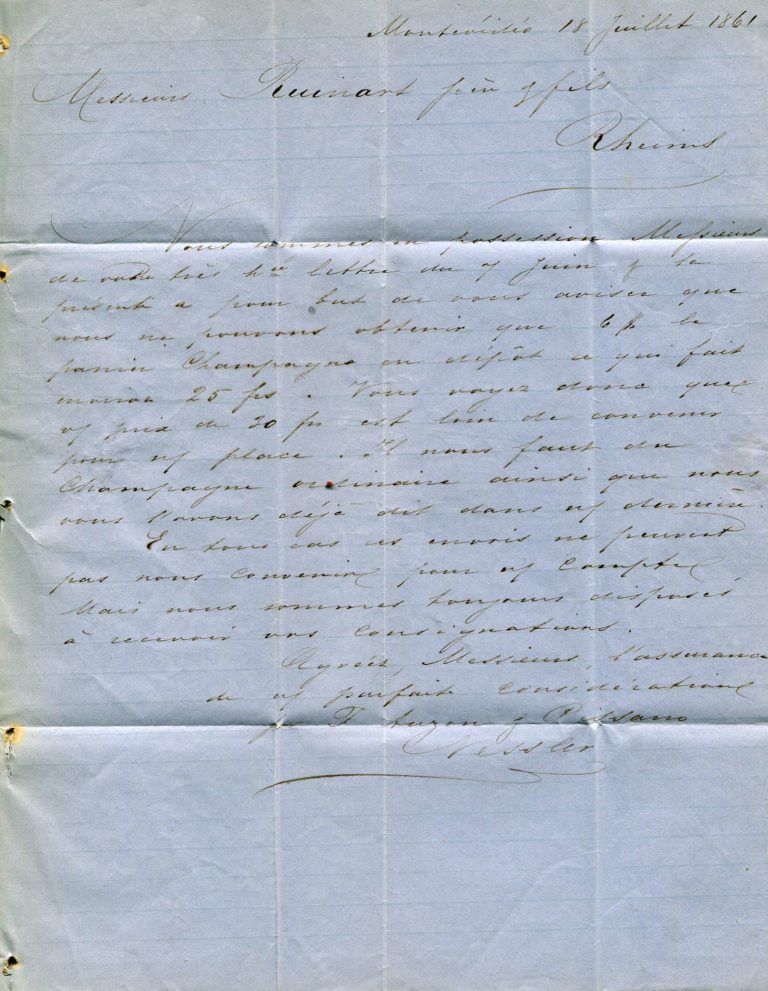 Montevidéo 18 Juillet 1861
Messieurs Ruinart père & fils
Rheims
Nous sommes en possession Messieurs
de votre très hre lettre du 7 Juin & la
présente a pour but de vous aviser que
nous ne pouvons obtenir que 6 $ le
panier Champagne en dépôt ce qui fait
environ 25 frs. Vous voyez donc que
prix de 30 frs est loin de convenir
pour place. Il nous faut du
Champagne ordinaire ainsi que nous
vous l'avons déjà dit dans dernière.
En tous cas ces envois ne peuvent
pas nous convenir pour compte
Mais nous sommes toujours disposés
à recevoir vos consignations.
Agréez, Messieurs, l'assurance
de parfaite considération
Nessler